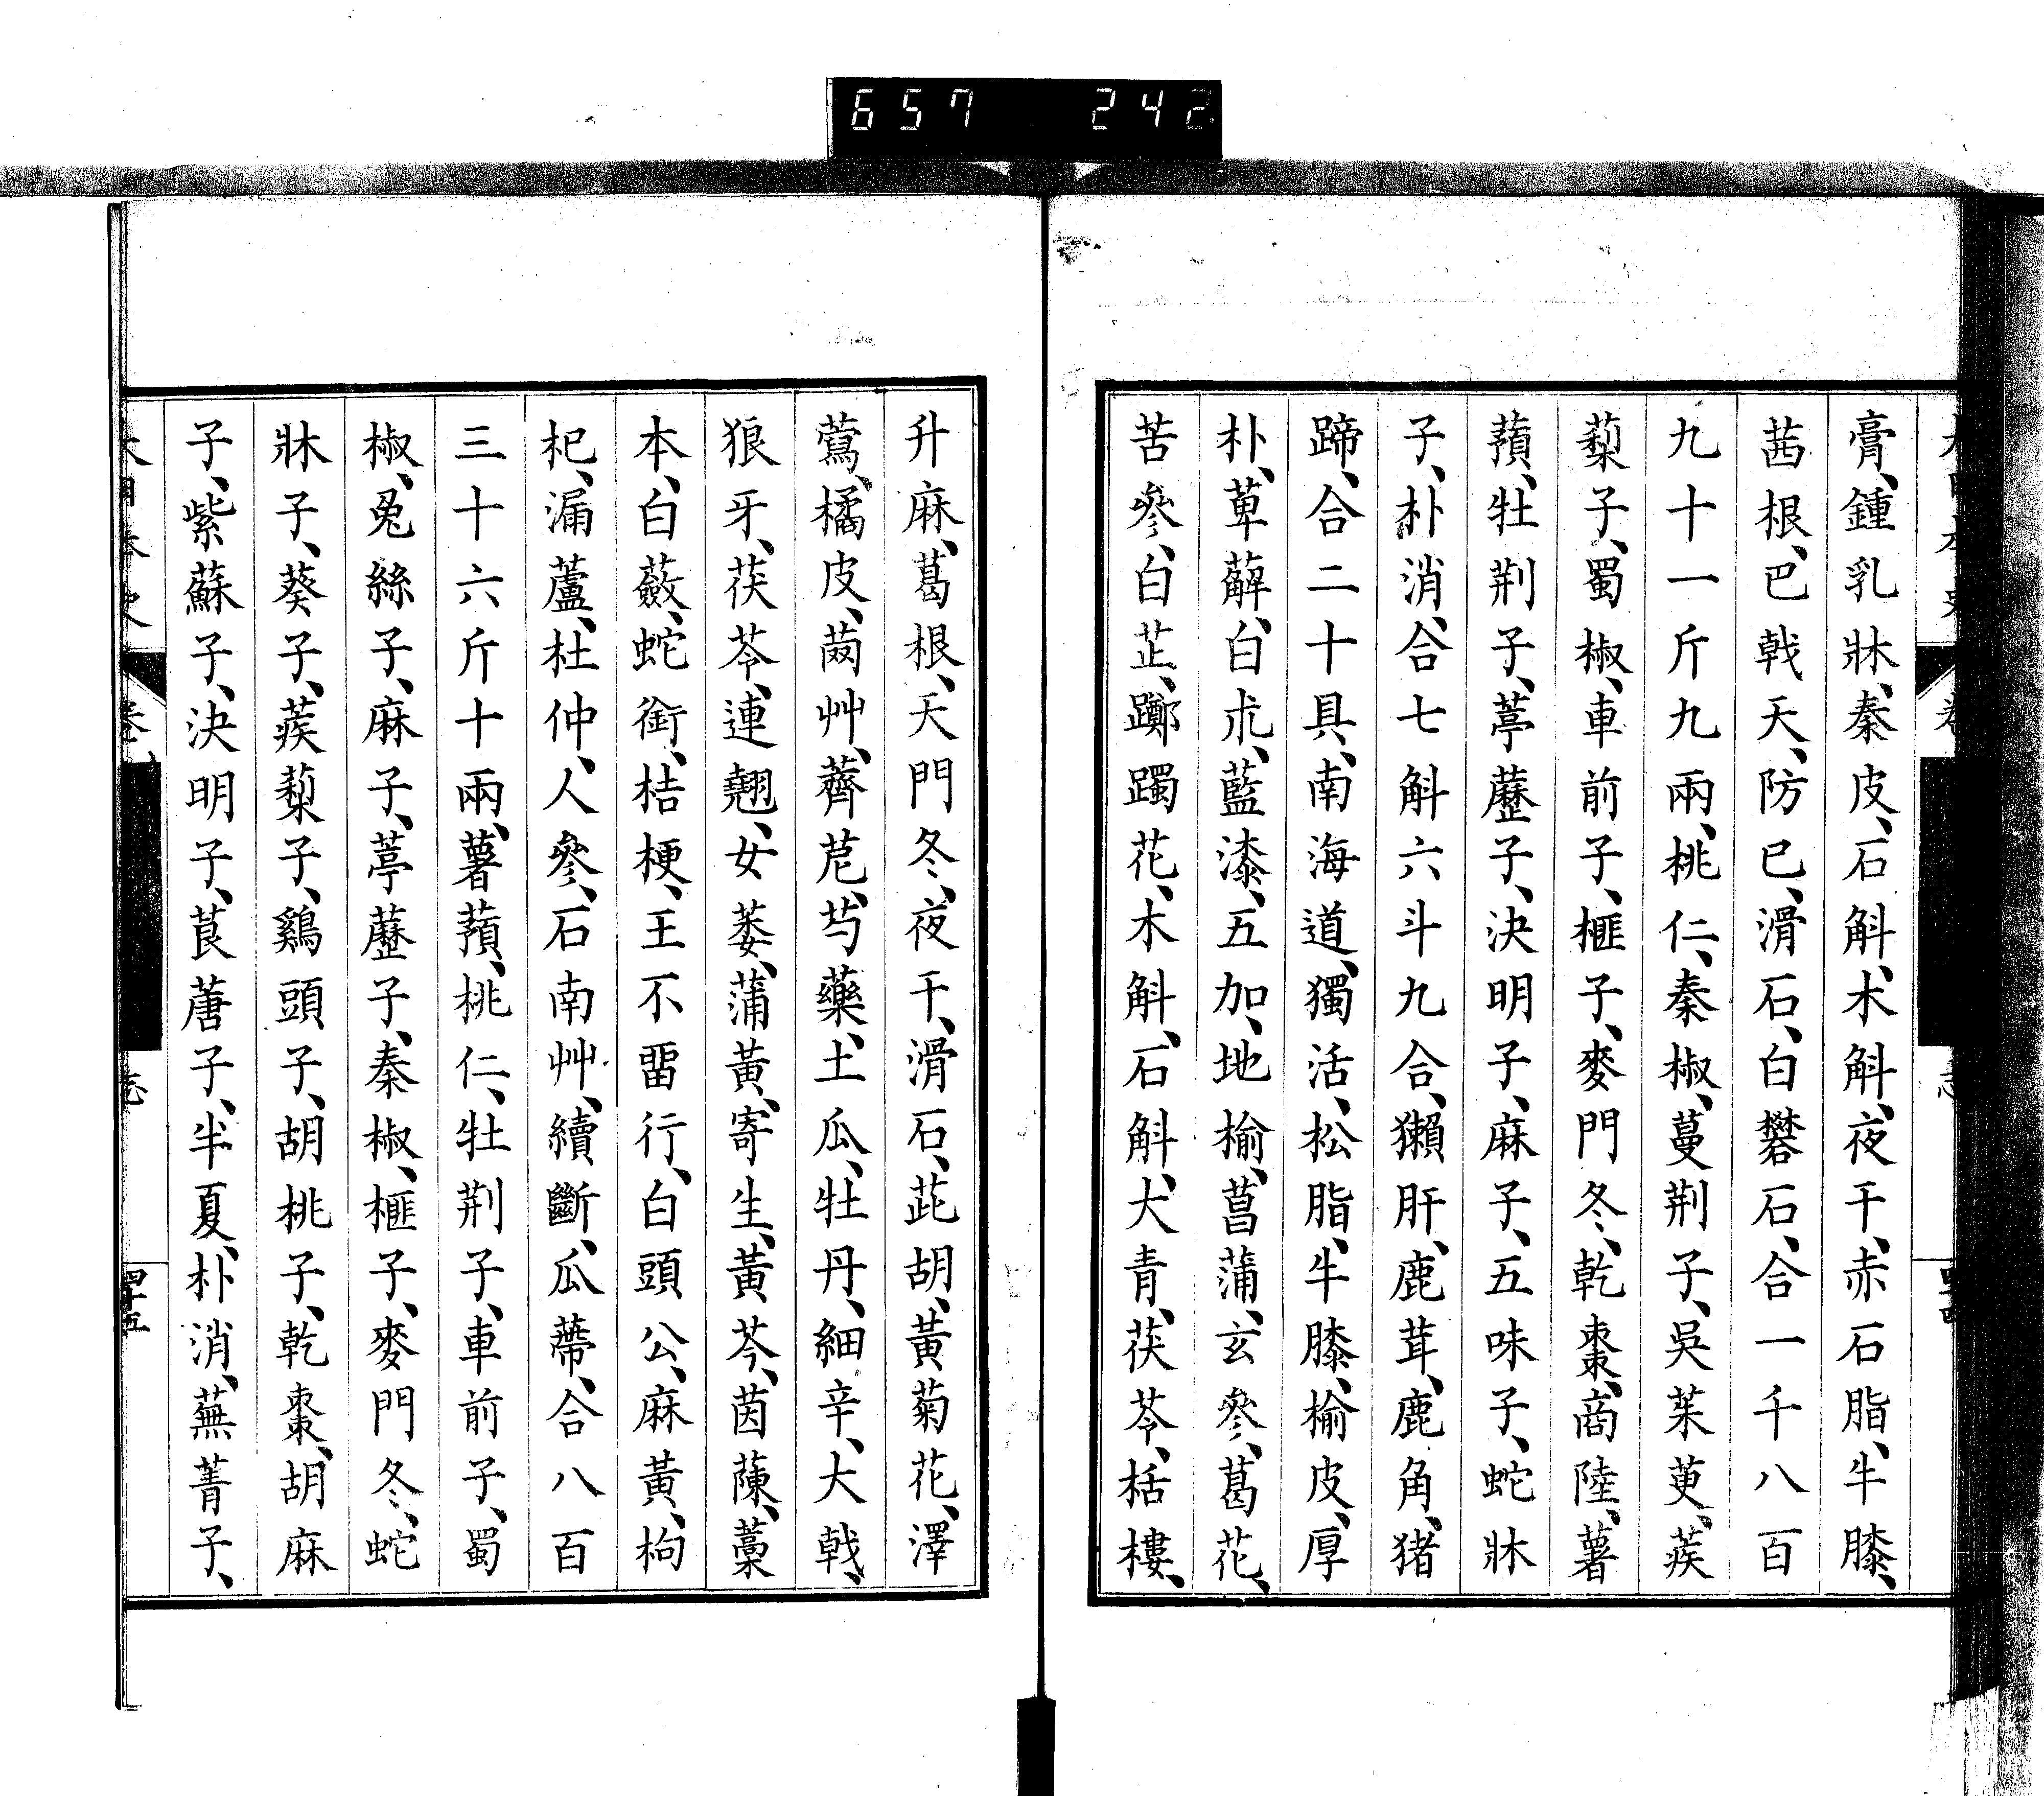 657 242
膏、鍾乳牀、秦皮、石斛、木斛、夜干、赤石脂、牛膝、
茜根、巴戟天、防已、滑石、白礬石、合一千八百
九十一斤九兩、桃仁、秦椒、蔓荆子、吳茱萸、蒺
蔾子、蜀椒、車前子、榧子、麥門冬、乾棗、商陸、薯
蕷、牡荆子、葶藶子、決明子、麻子、五味子、蛇牀
子、朴消、合七斛六斗九合、獺肝、鹿茸、鹿角、猪
蹄、合二十具、南海道、獨活、松脂、牛膝、榆皮、厚
朴、萆薢、白朮、藍漆、五加、地榆、菖蒲、玄參、葛花、
苦參、白芷、躑躅花、木斛、石斛、大青、茯苓、栝樓、
升麻、葛根、天門冬、夜干、滑石、茈胡、黃菊花、澤
蔿、橘皮、茵艸、薺苨、芍藥、土瓜、牡丹、細辛、大戟、
狼牙、茯苓、連翹、女萎、蒲黃、寄生、黃芩、茵蔯、藁
本、白蘞、蛇銜、桔梗、王不畱行、白頭公、麻黃、枸
杞、漏蘆、杜仲、人參、石南艸、續斷、瓜蔕、合八百
三十六斤十兩、薯蕷、桃仁、牡荆子、車前子、蜀
椒、兔絲子、麻子、葶藶子、秦椒、榧子、麥門冬、蛇
牀子、葵子、蒺蔾子、鷄頭子、胡桃子、乾棗、胡麻
子、紫蘇子、決明子、莨蓎子、半夏、朴消、蕪菁子、
志
四十五